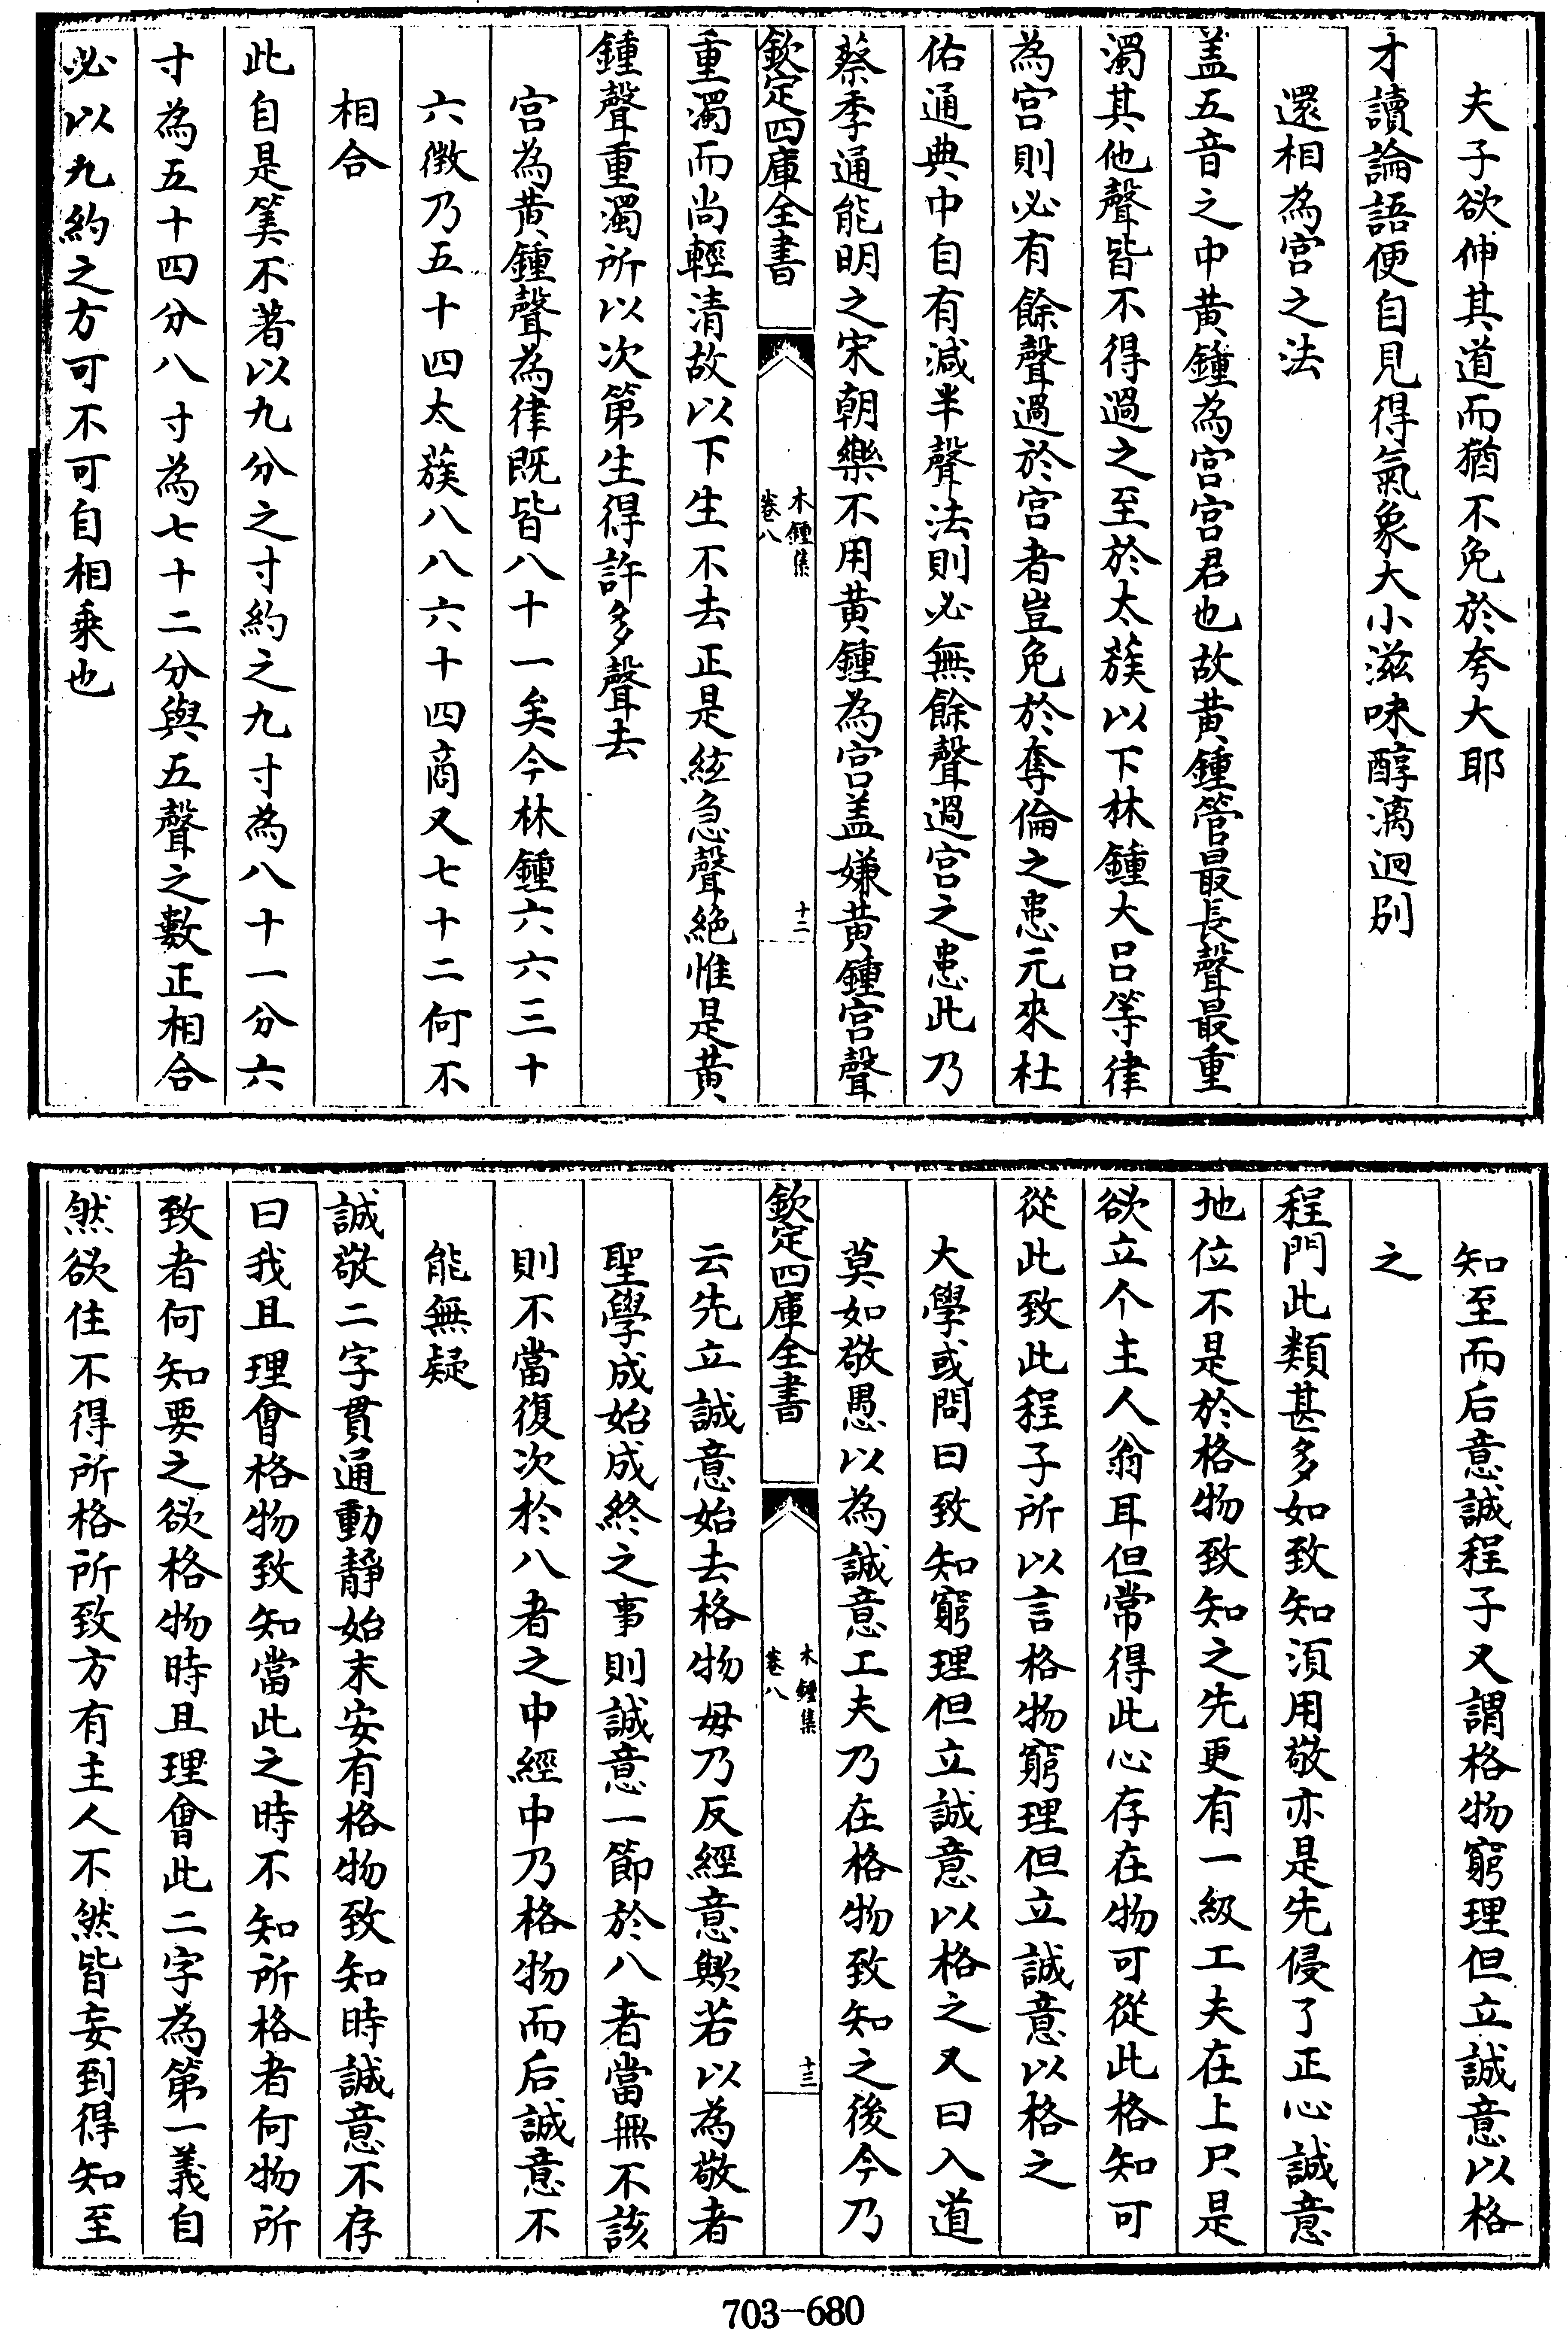 夫子欲伸其道而猶不免於夸大耶
才讀論語便自見得氣象大小滋味醇漓迥別
還相為宮之法
盖五音之中黄鍾為宮宮君也故黄鍾管最長聲最重
濁其他聲皆不得過之至於太蔟以下林鍾大呂等律
為宮則必有餘聲過於宮者豈免於奪倫之患元來杜
佑通典中自有減半聲法則必無餘聲過宮之患此乃
蔡季通能明之宋朝樂不用黄鍾為宮盖嫌黄鍾宮聲
欽定四庫全書
木鍾集
卷八
十二
重濁而尚輕清故以下生不去正是絃急聲絶惟是黄
鍾聲重濁所以次第生得許多聲去
宮為黄鍾聲為律既皆八十一矣今林鍾六六三十
六徴乃五十四太蔟八八六十四商又七十二何不
相合
此自是筭不著以九分之寸約之九寸為八十一分六
寸為五十四分八寸為七十二分與五聲之數正相合
必以九約之方可不可自相乗也
知至而后意誠程子又謂格物窮理但立誠意以格
之
程門此類甚多如致知須用敬亦是先侵了正心誠意
地位不是於格物致知之先更有一級工夫在上只是
欲立个主人翁耳但常得此心存在物可從此格知可
從此致此程子所以言格物窮理但立誠意以格之
大學或問曰致知窮理但立誠意以格之又曰入道
莫如敬愚以為誠意工夫乃在格物致知之後今乃
欽定四庫全書
木鍾集
卷八
十三
云先立誠意始去格物毋乃反經意歟若以為敬者
聖學成始成終之事則誠意一節於八者當無不該
則不當復次於八者之中經中乃格物而后誠意不
能無疑
誠敬二字貫通動靜始末安有格物致知時誠意不存
曰我且理會格物致知當此之時不知所格者何物所
致者何知要之欲格物時且理會此二字為第一義自
然欲住不得所格所致方有主人不然皆妄到得知至
703-680